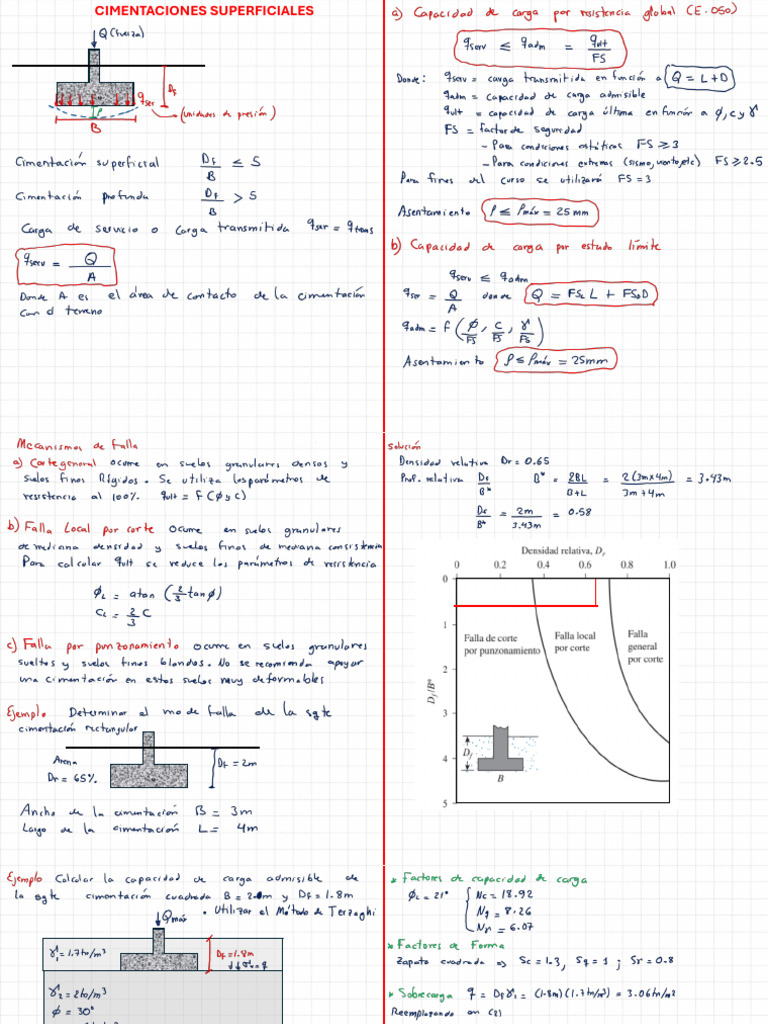 CIMENTACIONES SUPERFICIALES
Q (fuerza)
Df
qser
(unidades de presión)
ρ
B
Cimentación superficial Df/B ≤ 5
Cimentación profunda Df/B > 5
Carga de servicio o carga transmitida qser = qtrans
qserv = Q/A
Donde A es el área de contacto de la cimentación
con el terreno
a) Capacidad de carga por resistencia global (E.050)
qserv ≤ qadm = qult/FS
Donde: qserv = carga transmitida en función a Q = L+D
qadm = capacidad de carga admisible
qult = capacidad de carga última en función a φ, c y γ
FS = factor de seguridad
- Para condiciones estáticas FS ≥ 3
- Para condiciones extremas (sismo, viento, etc) FS ≥ 2.5
Para fines del curso se utilizará FS = 3
Asentamiento ρ ≤ ρmáx = 25 mm
b) Capacidad de carga por estado límite
qserv ≤ qadm
qser = Q/A donde Q = FSL L + FSD D
qadm = f (φ/FS, c/FS, γ/FS)
Asentamiento ρ ≤ ρmáx = 25mm
Mecanismos de falla
a) Corte general ocurre en suelos granulares densos y
suelos finos Rígidos. Se utiliza los parámetros de
resistencia al 100%. qult = f (φ y c)
b) Falla Local por corte ocurre en suelos granulares
de mediana densidad y suelos finos de mediana consistencia
Para calcular qult se reduce los parámetros de resistencia
φL = atan (2/3 tan φ)
CL = 2/3 C
c) Falla por punzonamiento ocurre en suelos granulares
sueltos y suelos finos blandos. No se recomienda apoyar
una cimentación en estos suelos muy deformables
Ejemplo Determinar el modo de falla de la sgte
cimentación rectangular
Arena
Dr = 65%.
Df = 2m
Ancho de la cimentación B = 3m
Largo de la cimentación L = 4m
Solución
Densidad relativa Dr = 0.65
Prof. relativa Df/B* B* = 2BL/B+L = 2(3m×4m)/3m+4m = 3.43m
Df/B* = 2m/3.43m = 0.58
Densidad relativa, Dr
0 0.2 0.4 0.6 0.8 1.0
0
1
2
3
4
5
Df/B*
Falla de corte
por punzonamiento
Falla local
por corte
Falla
general
por corte
Df
B
Ejemplo Calcular la capacidad de carga admisible de
la sgte cimentación cuadrada B = 2.0m y Df = 1.8m
• Utilizar el Método de Terzaghi
Qmáx
γ1 = 1.7tn/m³
Df = 1.8m
γ2 = 2tn/m³
φ = 30°
* Factores de capacidad de carga
φL = 21° { Nc = 18.92
Nq = 8.26
Nγ = 6.07
* Factores de Forma
Zapata cuadrada => Sc = 1.3, Sq = 1 ; Sγ = 0.8
* Sobrecarga q = Df γ1 = (1.8m)(1.7tn/m³) = 3.06 tn/m²
Reemplazando en (2)